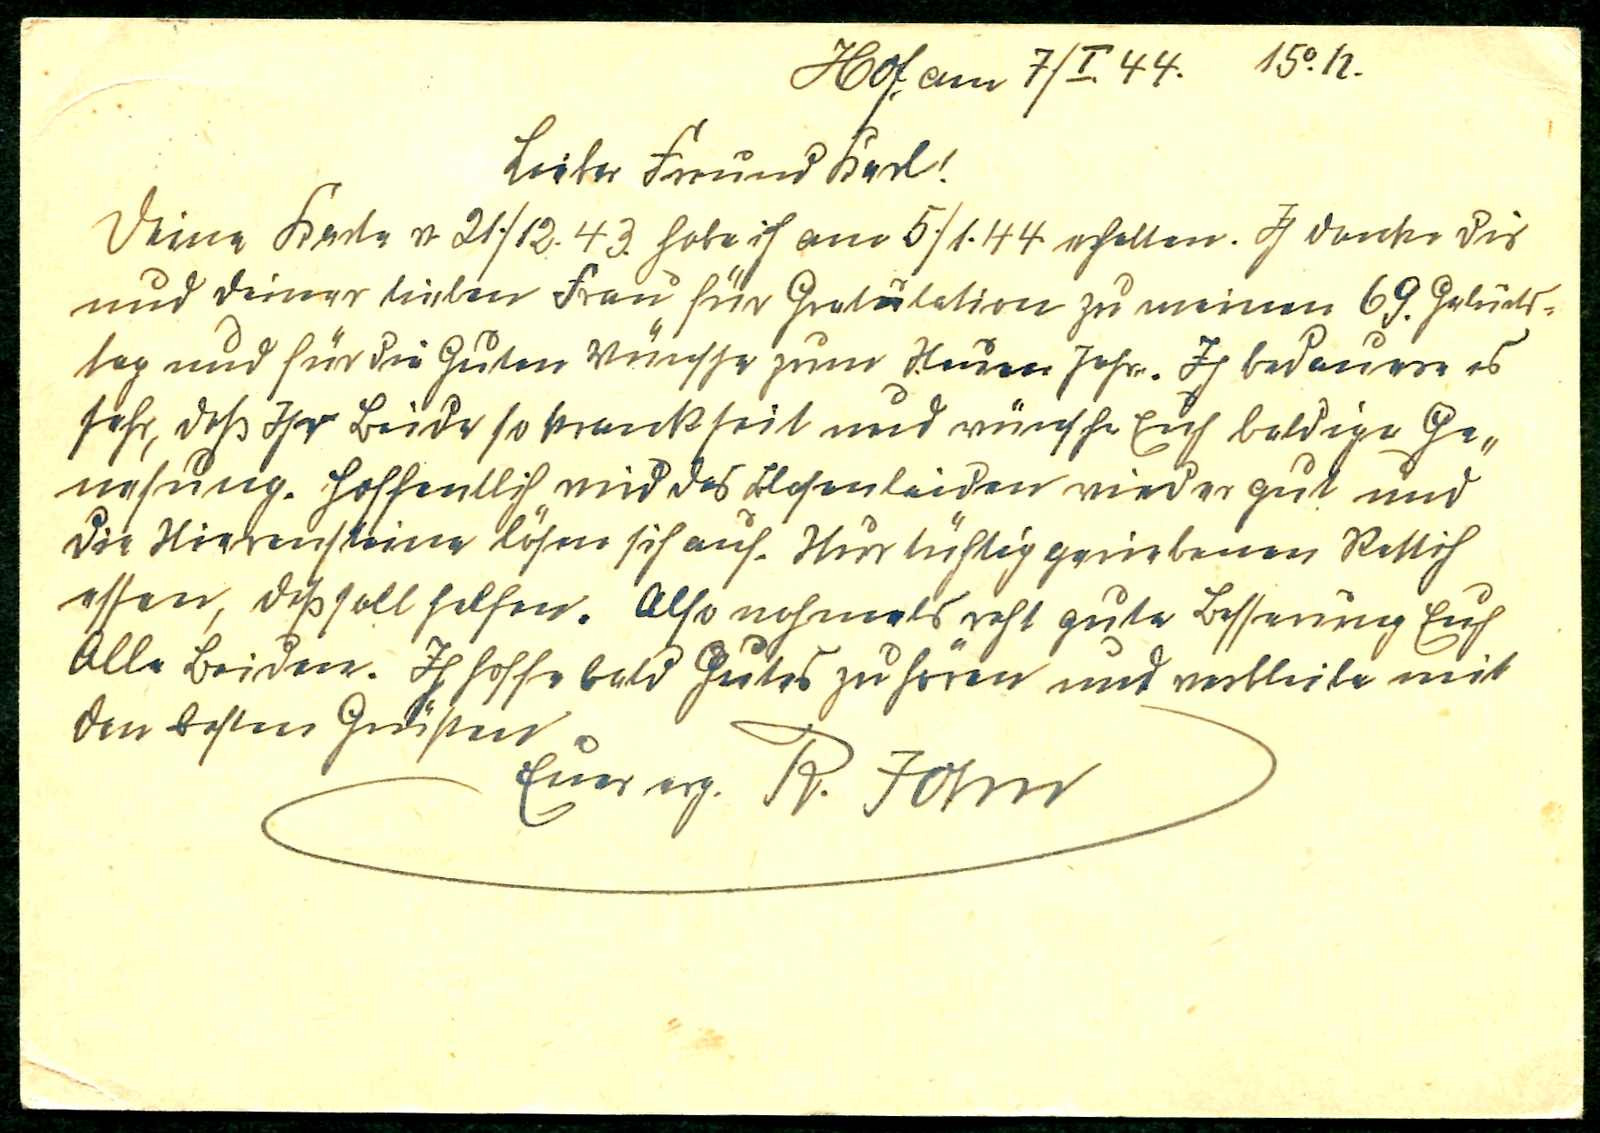 Hof, am 7/I. 44. 15º. h.
Lieber Freund Karl!
Deine Karte v. 21./12. 43. habe ich am 5./1. 44 erhalten. Ich danke Dir
und Deiner lieben Frau für Gratulation zu meinen 69. Geburts-
tag und für die Guten Wünsche zum Neuen Jahr. Ich bedauere es
sehr, daß Ihr Beide so krank seit und wünsche Euch baldige Ge„
nesung. Hoffentlich wird das Blasenleiden wieder gut und
die Nierensteine lösen sich auf. Nur tüchtig geriebenen Rettich
essen, daß soll helfen. Also nochmals recht gute Besserung Euch
Alle Beiden. Ich hoffe bald Gutes zu hören und verbleibe mit
den besten Grüßen
Euer erg. R. John